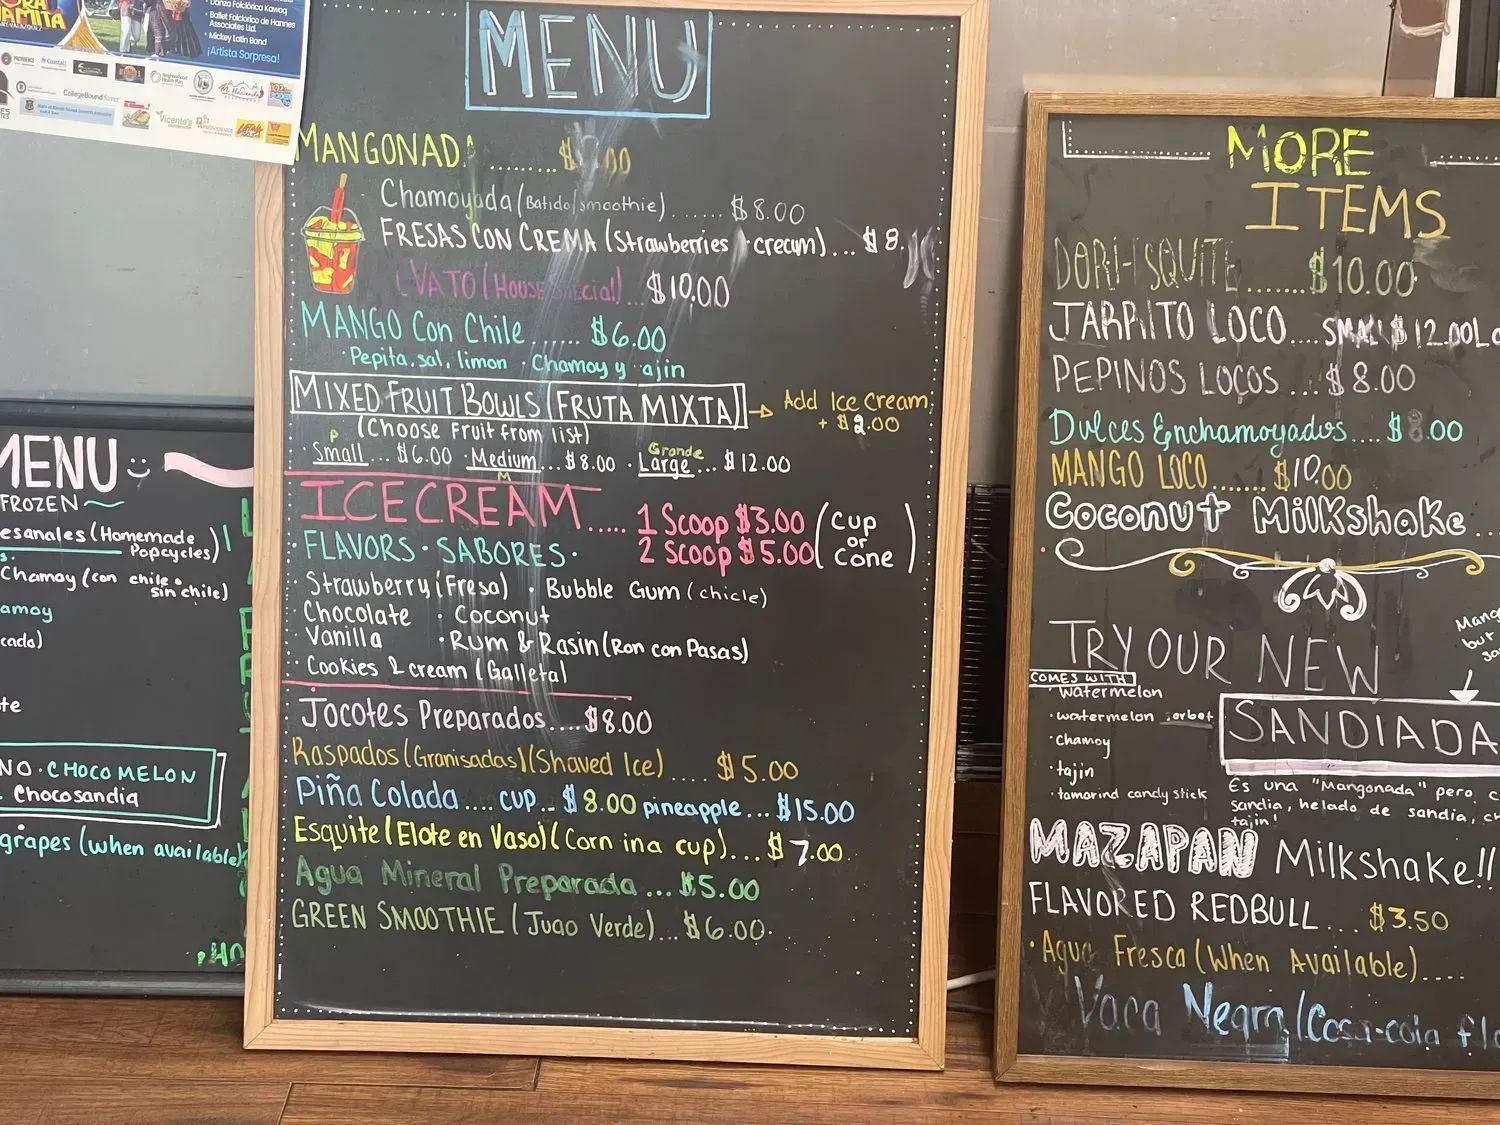 Danza Folclórica Kawoq
Ballet Folclorico de Hannes
Associates Ltd.
Mickey Latin Band
¡Artista Sorpresa!
CollegeBound
Vicente's
PROVIDENCE
MENU
FROZEN
esanales (Homemade
Popcycles)
Chamoy (con chile o
sin chile)
amoy
cado)
te
NO · CHOCOMELON
Chocosandia
grapes (when available)
MENU
MANGONADA ......... $ .00
Chamoyada (Batido/smoothie) ...... $8.00
FRESAS CON CREMA (Strawberries cream) ... $8.
VATO (House Special) ... $10.00
MANGO Con Chile ...... $6.00
· Pepita, sal, limon Chamoy y ajin
MIXED FRUIT BOWLS (FRUTA MIXTA)
Add Ice Cream
+ $2.00
(Choose Fruit from list)
P
Grande
· Small ... $6.00 · Medium ... $8.00 · Large ... $12.00
M
ICECREAM ..... 1 Scoop $3.00
2 Scoop $5.00
(Cup
or
Cone)
FLAVORS · SABORES ·
· Strawberry (Fresa) · Bubble Gum (chicle)
· Chocolate · Coconut
· Vanilla · Rum & Rasin (Ron con Pasas)
· Cookies & cream (Galleta)
Jocotes Preparados .... $8.00
Raspados (Granisadas) (Shaved Ice) .... $5.00
Piña Colada .... CUP .. $8.00 pineapple ... $15.00
Esquite (Elote en Vaso) (Corn in a cup) ... $7.00
Agua Mineral Preparada ... $5.00
GREEN SMOOTHIE (Jugo Verde) ... $6.00
MORE
ITEMS
DORI-ESQUITE ....... $10.00
JARRITO LOCO .... SMALL $12.00 Lo
PEPINOS LOCOS ... $8.00
Dulces Enchamoyados .... $ .00
MANGO LOCO ....... $10.00
Coconut Milkshake ...
TRY OUR NEW
Mang
but
COMES WITH
· watermelon
· watermelon sorbet
· chamoy
· tajin
· tamarind candy stick
SANDIADA
Es una "Mangonada" pero c
Sandia, helado de sandia, ch
tajin!
MAZAPAN Milkshake!!
FLAVORED REDBULL ... $3.50
· Agua Fresca (When Available) ....
Vaca Negra (Coca-cola fl